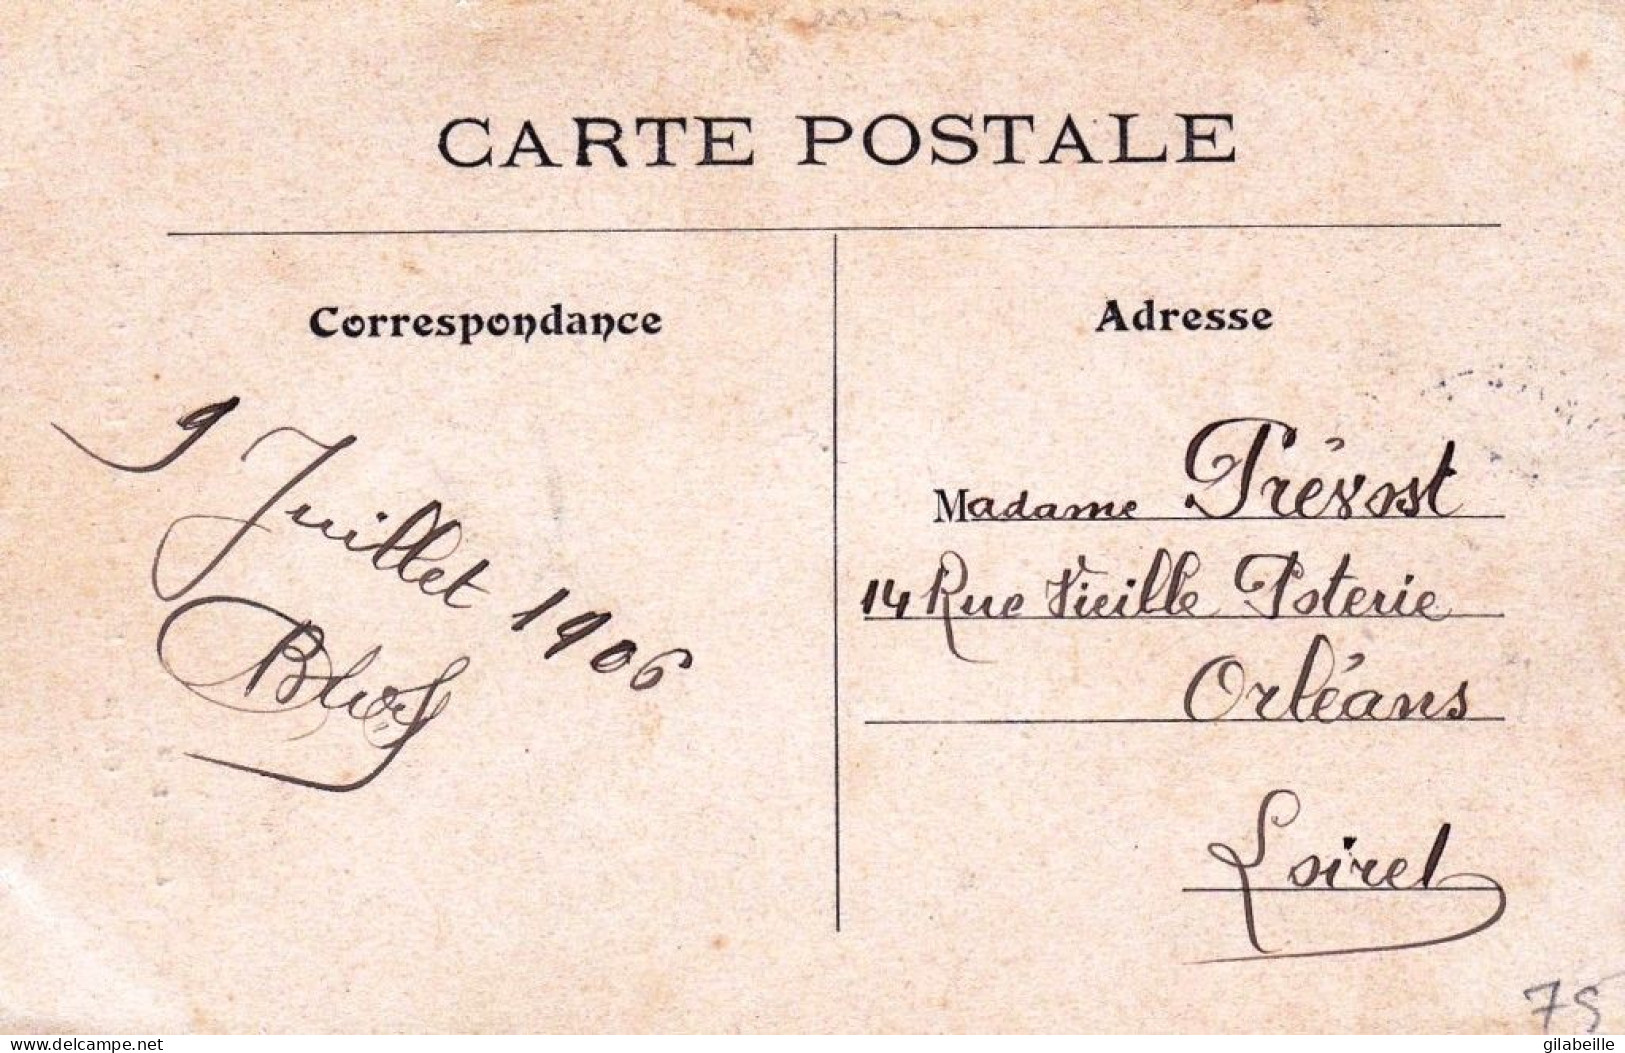 CARTE POSTALE
Correspondance
9 Juillet 1906
Adresse
Madame Prévost
14 Rue Vieille Poterie
Orléans
Loiret
75
gilabeille
delcampe.net